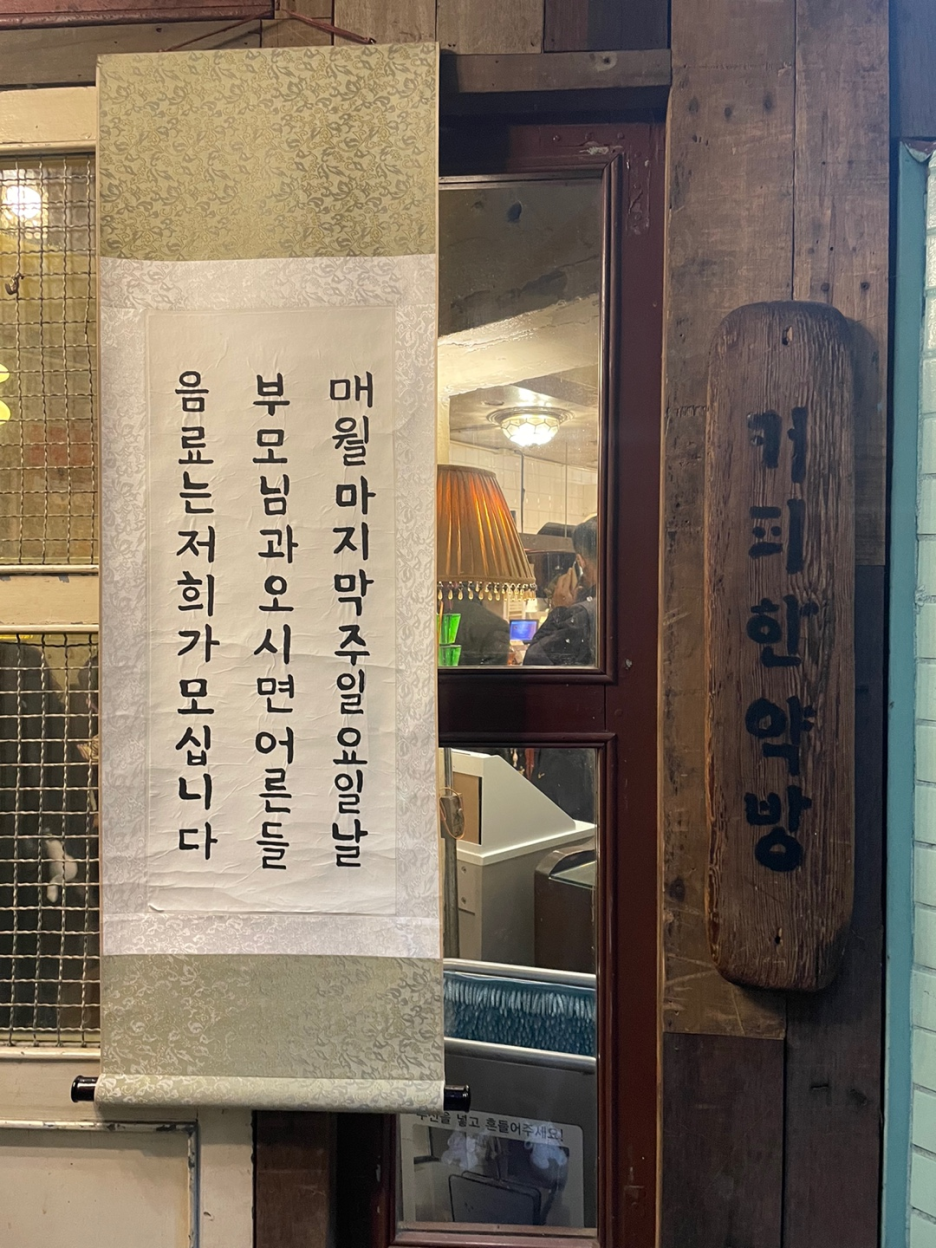 매월마지막주일요일날
부모님과오시면어른들
음료는저희가모십니다
커피한약방
넣고 흔들어주세요!